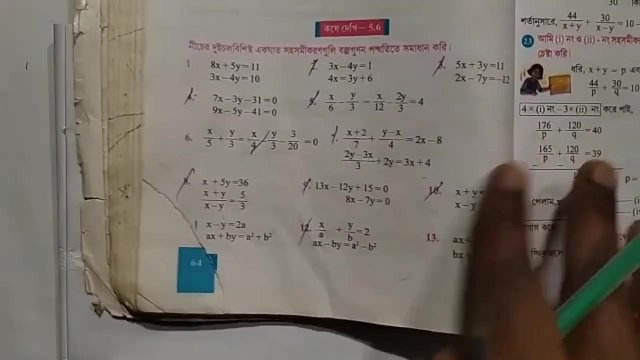 কষে দেখি— 5.6
নীচের দুইচলবিশিষ্ট একঘাত সহসমীকরণগুলি বজ্রগুণন পদ্ধতিতে সমাধান করি।
1. 8x + 5y = 11
3x − 4y = 10
3x − 4y = 1
4x = 3y + 6
5x + 3y = 11
2x − 7y = −12
7x − 3y − 31 = 0
9x − 5y − 41 = 0
x/6 − y/3 = x/12 − 2y/3 = 4
6. x/5 + y/3 = x/4 − y/3 − 3/20 = 0
(x+2)/7 + (y−x)/4 = 2x − 8
(2y−3x)/3 + 2y = 3x + 4
8. x + 5y = 36
(x+y)/(x−y) = 5/3
9. 13x − 12y + 15 = 0
8x − 7y = 0
10. x + y =
x − y
x − y = 2a
ax + by = a² + b²
12. x/a + y/b = 2
ax − by = a² − b²
13. ax
bx
64
শর্তানুসারে, 44/(x+y) + 30/(x−y) = 10
23 আমি (i) নং ও (ii) - নং সহসমীকর
চেষ্টা করি।
ধরি, x + y = p এবং
44/p + 30/q = 10
4 × (i) নং − 3 × (ii) নং করে পাই,
176/p + 120/q = 40
165/p + 120/q = 39
p =